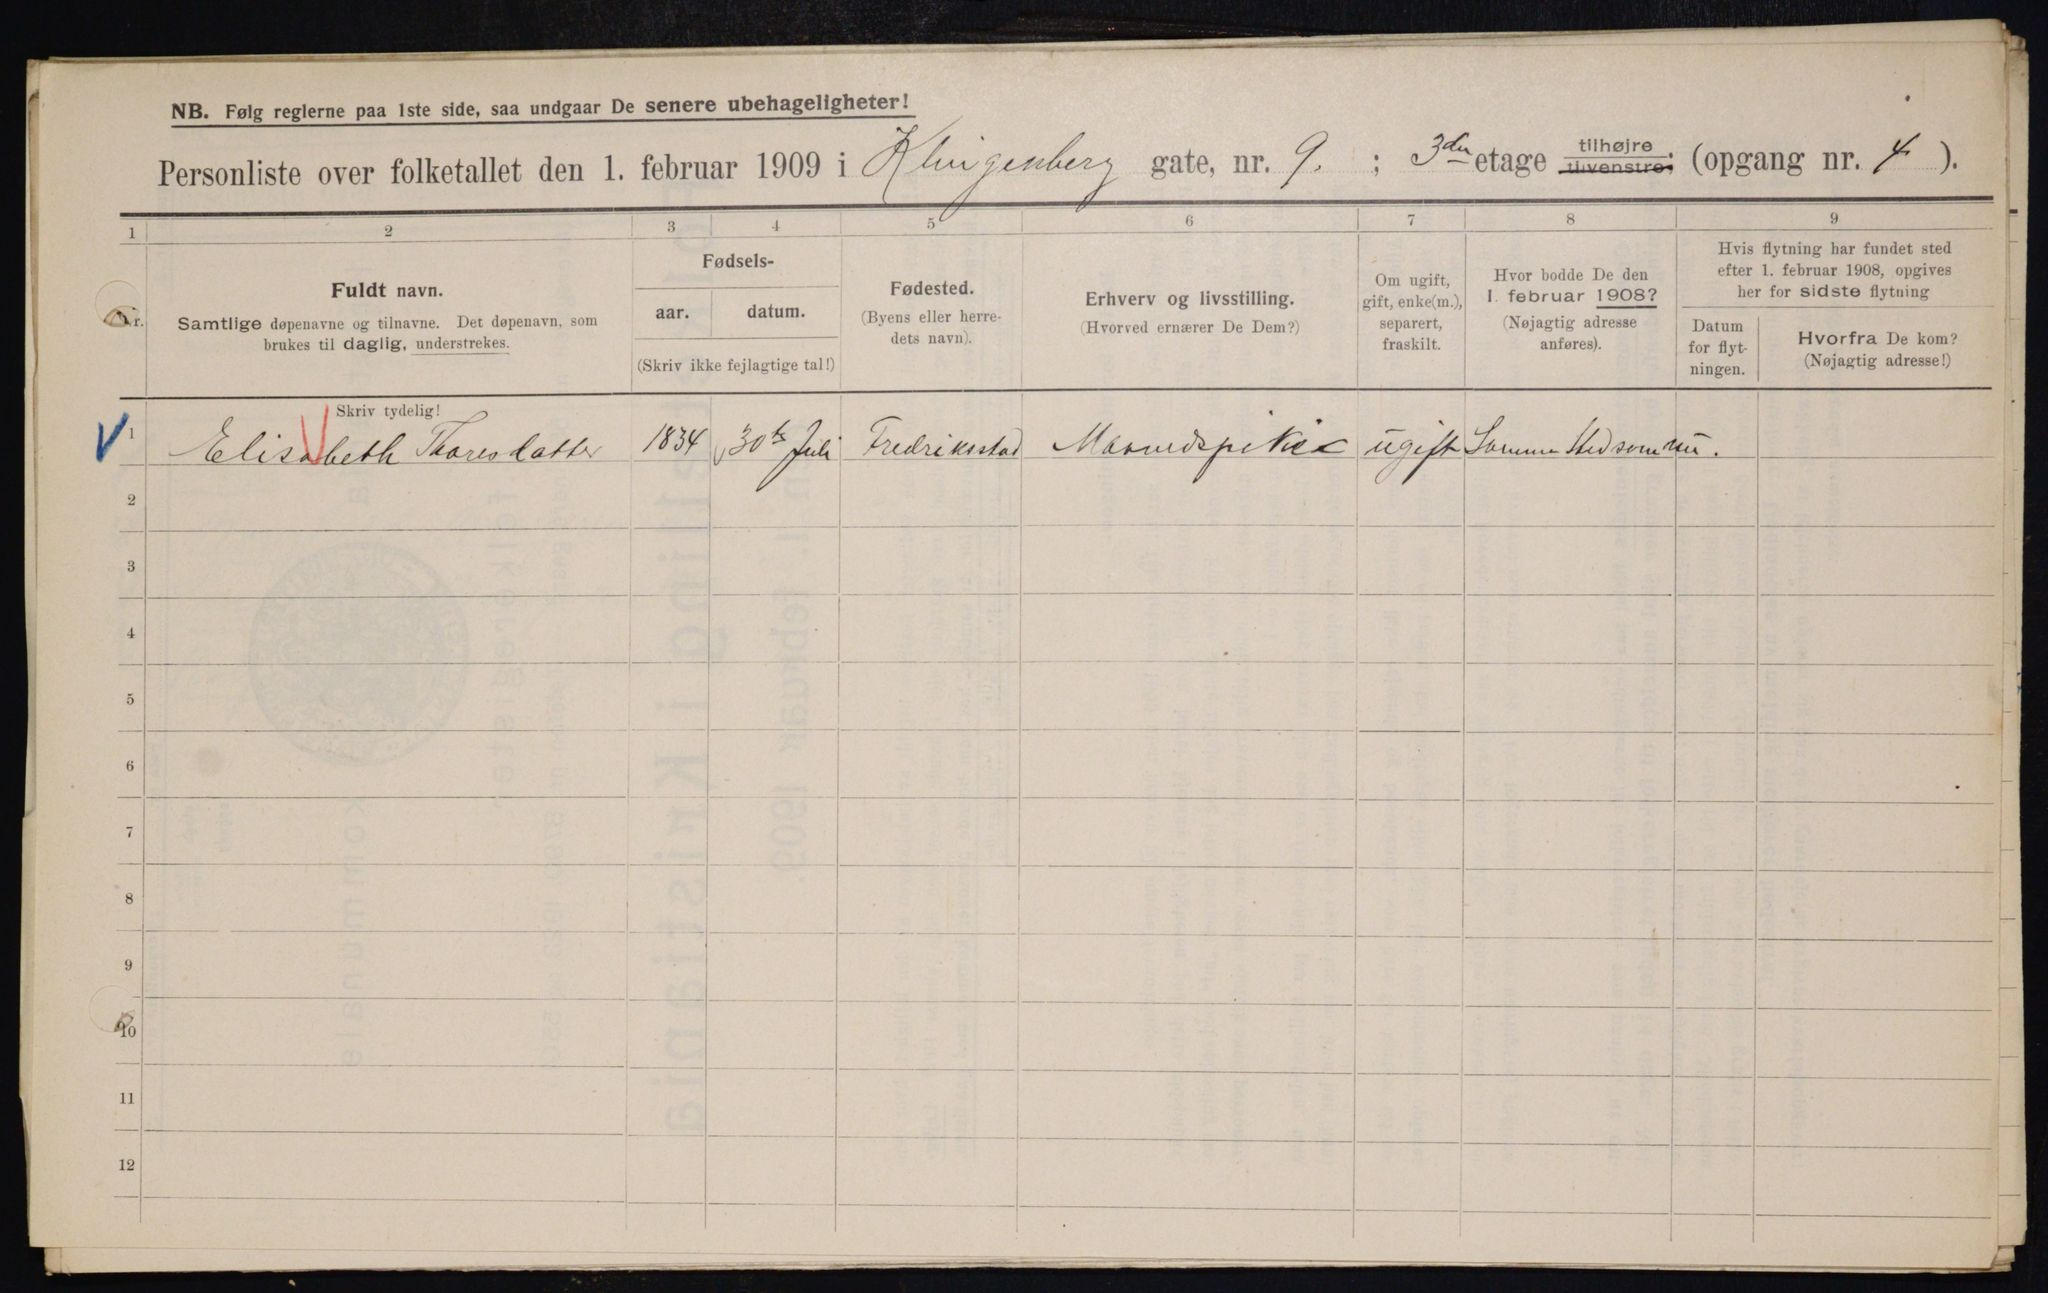 NB. Følg reglerne paa 1ste side, saa undgaar De senere ubehageligheter!
Personliste over folketallet den 1. februar 1909 i Klingenberg gate, nr. 9. ; 3die etage tilhøjre tilvenstre: (opgang nr. 4 ).
1 2 3 4 5 6 7 8 9
Nr.
Fuldt navn.
Samtlige døpenavne og tilnavne. Det døpenavn, som
brukes til daglig, understrekes.
Fødsels-
aar. datum.
(Skriv ikke fejlagtige tal!)
Fødested.
(Byens eller herre-
dets navn).
Erhverv og livsstilling.
(Hvorved ernærer De Dem?)
Om ugift,
gift, enke(m.),
separert,
fraskilt.
Hvor bodde De den
1. februar 1908?
(Nøjagtig adresse
anføres).
Hvis flytning har fundet sted
efter 1. februar 1908, opgives
her for sidste flytning
Datum
for flyt-
ningen.
Hvorfra De kom?
(Nøjagtig adresse!)
Skriv tydelig!
1 Elisabeth Thoresdatter 1834 30te Juli Fredriksstad ugift Samme Sted som nu.
2
3
4
5
6
7
8
9
10
11
12